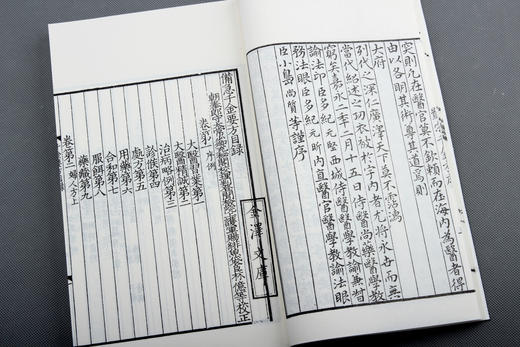 定則凡在醫官莫不欽賴而在海内為醫者得
由以各明其術粤其道焉則
大府
列代之深仁廣澤天下莫不霑濡
當代紹述之功衣被於宇内者尤將永世而無
窮矣嘉永二年二月十五日侍醫尚藥醫學教
諭法印臣多紀元堅西城侍醫醫學教諭兼督
務法眼臣多紀元昕内直醫官醫學教諭法眼
臣小島尚質等謹序
金澤文庫
備急千金要方目録
朝奉郎守太常少卿充秘閣校理判登聞檢院上護軍賜緋魚袋臣林億等校正
卷第一 序例
大醫習業第一
大醫精誠第二
治病略例第三
診候第四
處方第五
用藥第六
合和第七
服餌第八
藥藏第九
卷第二 婦人方上